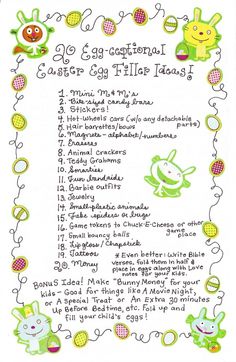 20 Egg-ceptional
Easter Egg Filler Ideas!
1. Mini M&M's
2. Bite-sized candy bars
3. Stickers!
4. Hot-wheels cars (w/o any detachable
parts)
5. Hair barrettes/bows
6. Magnets - alphabet/numbers
7. Erasers
8. Animal crackers
9. Teddy Grahams
10. Smarties
11. Fun bandaids
12. Barbie outfits
13. Jewelry
14. Small plastic animals
15. Fake spiders or bugs
16. Game tokens to Chuck-E-Cheese or other
game place
17. Small bouncy balls
18. Lip gloss / Chapstick
19. Tattoos
20. Money
* Even better: Write Bible
verses, fold them in half &
place in eggs along with Love
notes for your kids.
Bonus Idea! Make "Bunny Money" for your
kids - Good for things like A Movie Night,
or A Special Treat or An Extra 30 minutes
Up Before Bedtime, etc. Fold up and
fill your child's eggs!